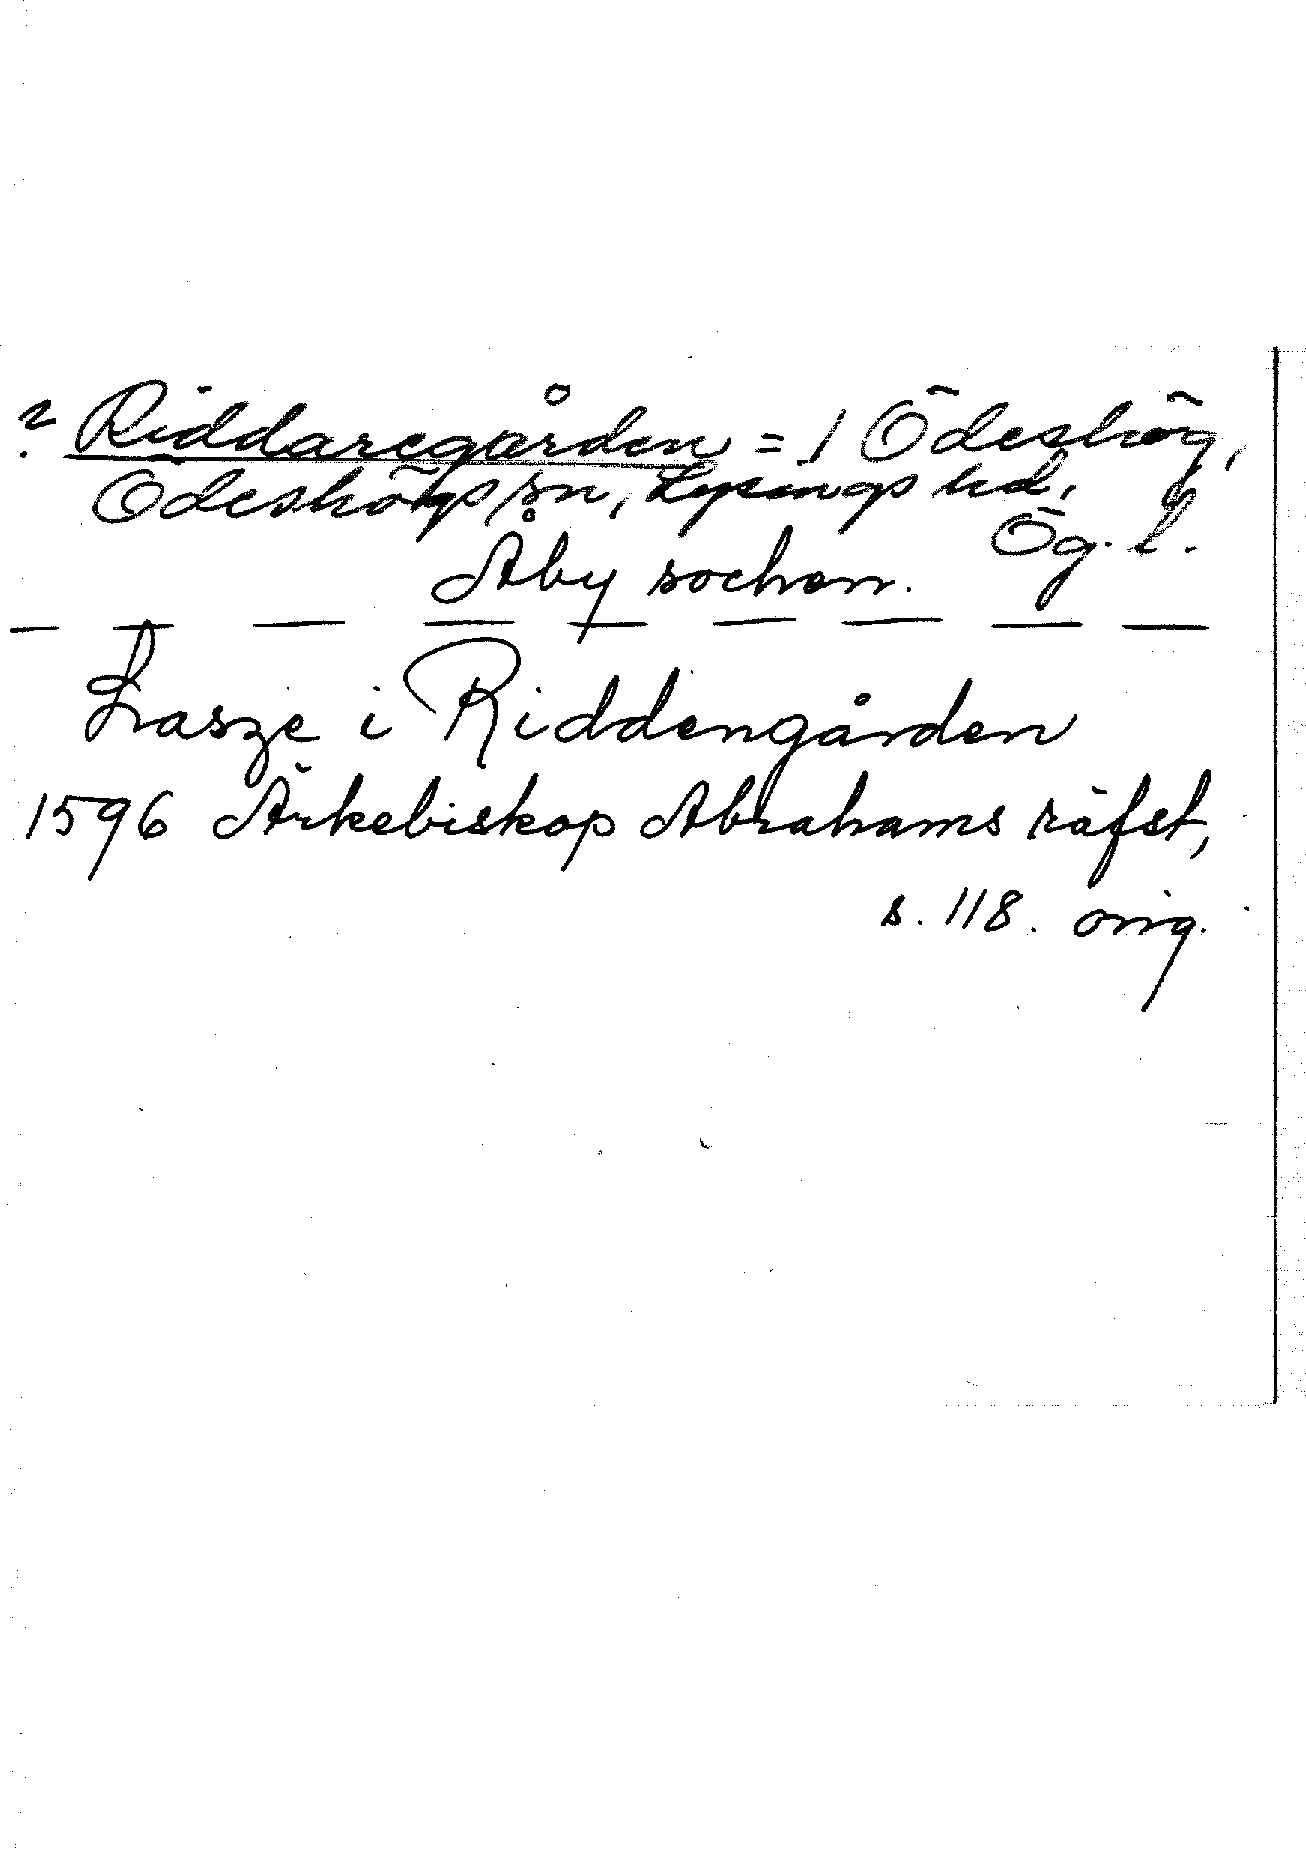 ? Riddaregården = 1 Ödeshög,
Ödeshögs sn, Lysings hd,
Ög. l.
Åby sochen.
Lasze i Riddengården
1596 Ärkebiskop Abrahams räfst,
s. 118. orig.